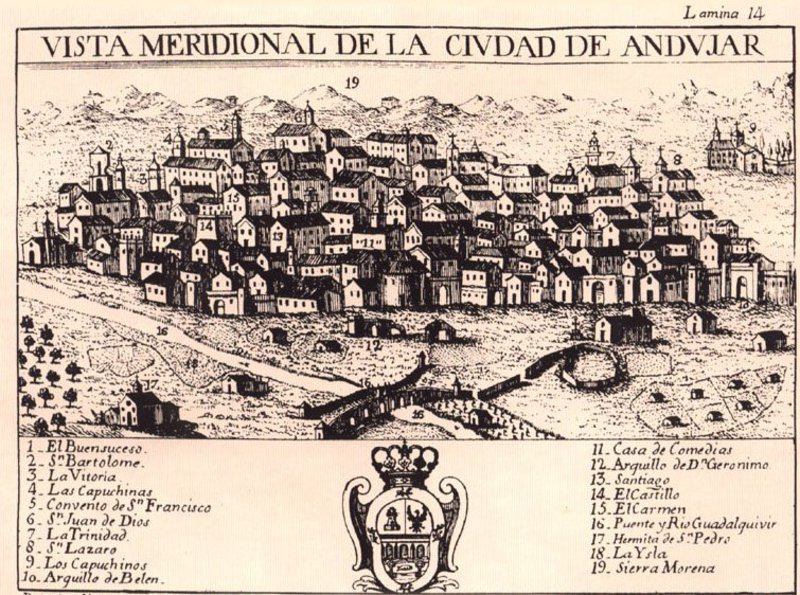 Lamina 14
VISTA MERIDIONAL DE LA CIVDAD DE ANDVJAR
19
6
9
2
4
3
7
8
15
14
11
16
12
18
17
16
16
1_ El Buensuceso.
2_ Sn. Bartolome.
3_ La Vitoria
4_ Las Capuchinas
5_ Convento de Sn Francisco
6_ Sn. Juan de Dios
7_ La Trinidad.
8_ Sn. Lazaro
9_ Los Capuchinos
10_ Arquillo de Belen.
11_ Casa de Comedias
12_ Arquillo de Dn. Geronimo.
13_ Santiago
14_ El Castillo
15_ El Carmen
16_ Puente y Rio Guadalquivir
17_ Hermita de Sn. Pedro
18_ La Ysla
19_ Sierra Morena